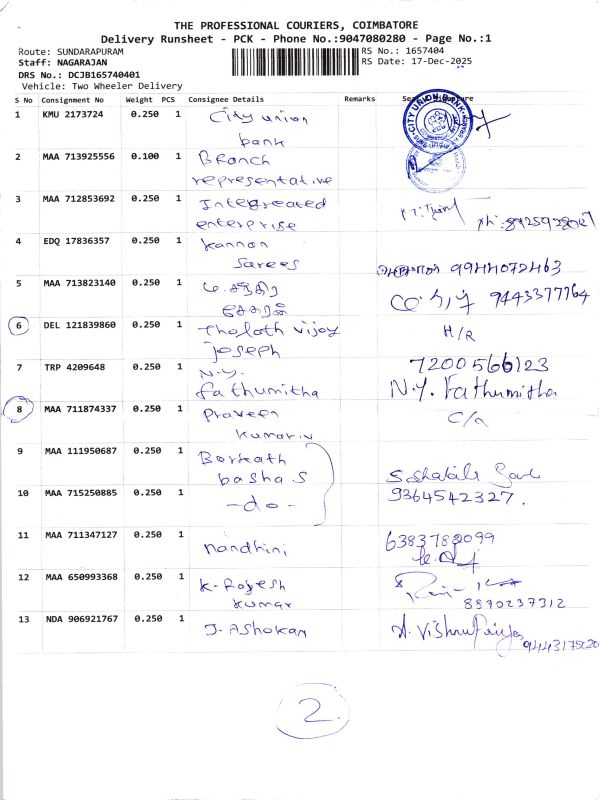 THE PROFESSIONAL COURIERS, COIMBATORE
Delivery Runsheet - PCK - Phone No.:9047080280 - Page No.:1
Route: SUNDARAPURAM RS No.: 1657404
Staff: NAGARAJAN RS Date: 17-Dec-2025
DRS No.: DCJB165740401
Vehicle: Two Wheeler Delivery
S No Consignment No Weight PCS Consignee Details Remarks
1 KMU 2173724 0.250 1 City union
bank
CITY UNION BANK
2 MAA 713925556 0.100 1 Branch
representative
3 MAA 712853692 0.250 1 Integreated
enterprise
4 EDQ 17836357 0.250 1 kannan
Sarees 9944072463
5 MAA 713823140 0.250 1 9443377764
6 DEL 121839860 0.250 1 Tholath vijoy H/R
joseph
7 TRP 4209648 0.250 1 N.Y. 7200566123
fathumitha N.Y. Fathumitha
8 MAA 711874337 0.250 1 Praveen C/a
kumar.v
9 MAA 111950687 0.250 1 Borkath
basha.S
10 MAA 715250885 0.250 1 -do- 9364542327.
11 MAA 711347127 0.250 1 nandhini 6383782099
12 MAA 650993368 0.250 1 K-Rajesh
kumar 8870237312
13 NDA 906921767 0.250 1 J-Ashokan
2